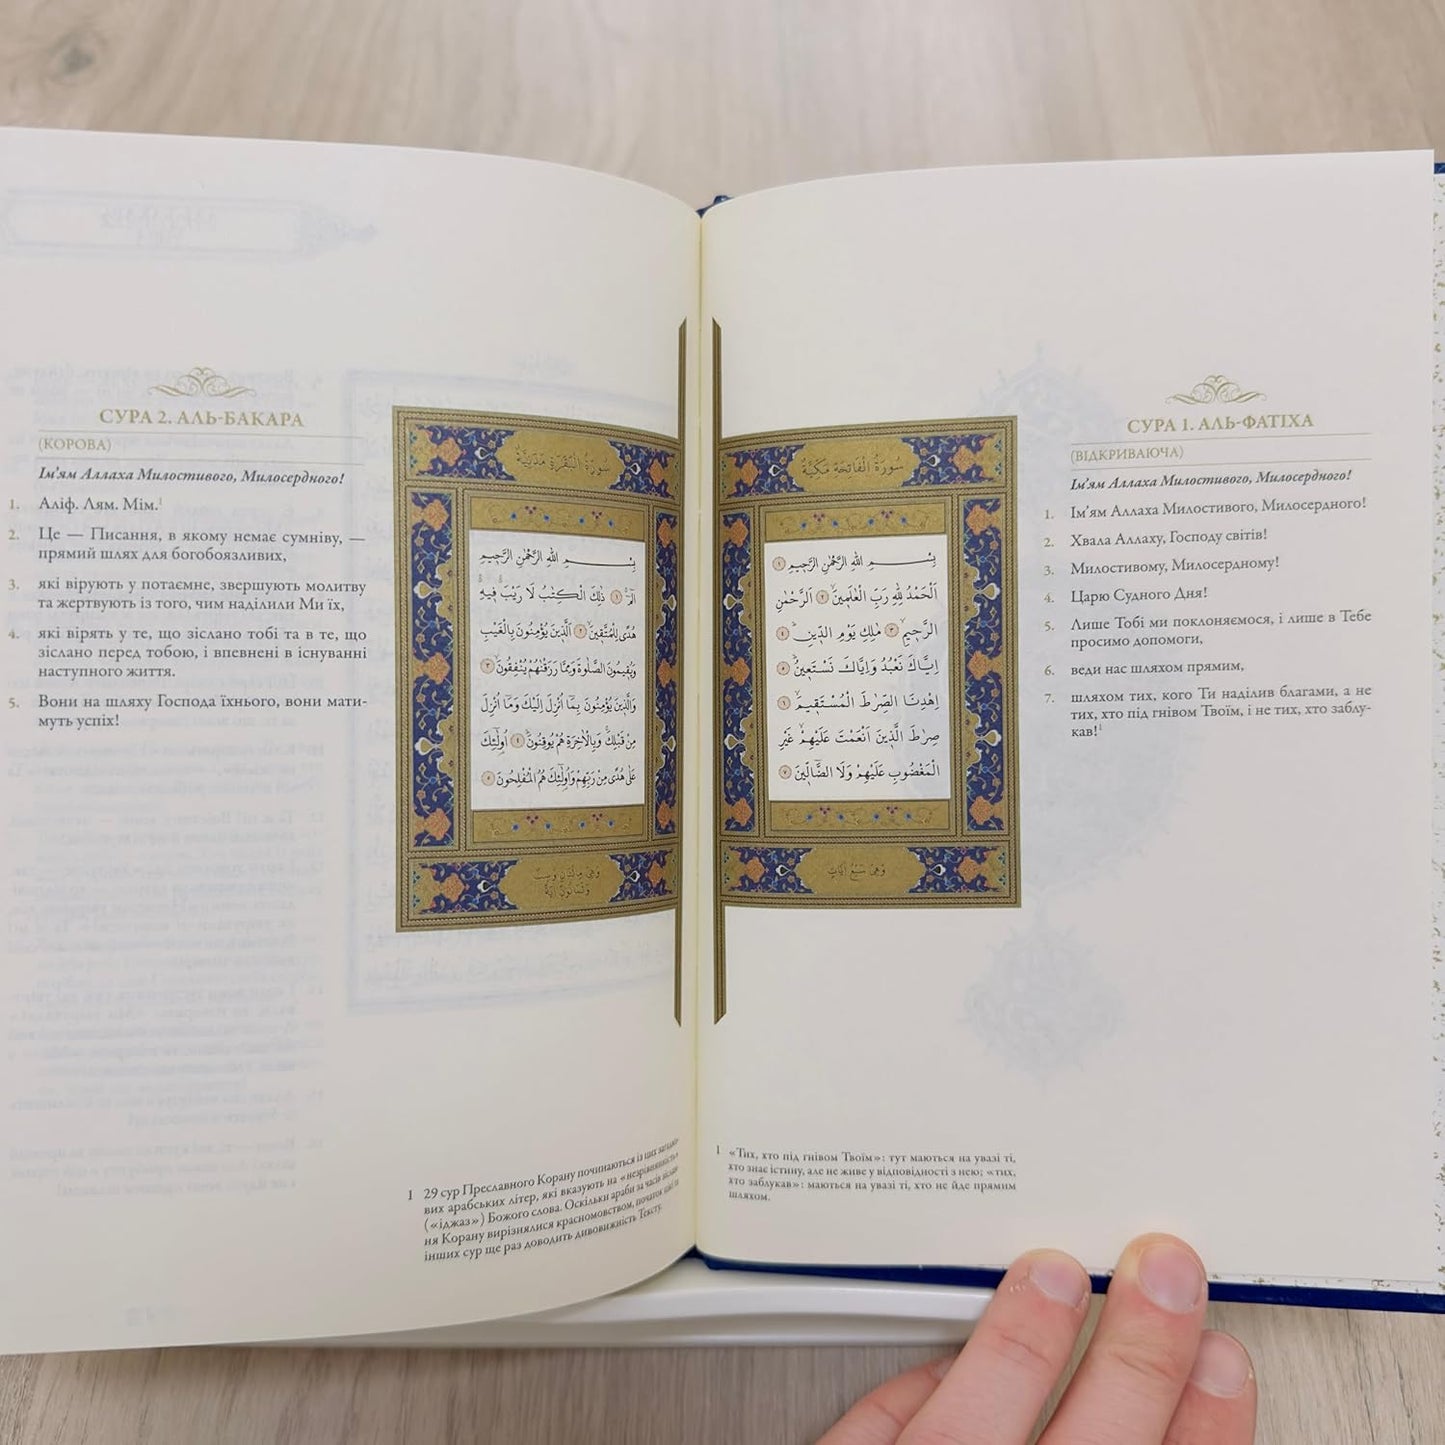 СУРА 1. АЛЬ-ФАТІХА
(ВІДКРИВАЮЧА)
Ім’ям Аллаха Милостивого, Милосердного!
1. Ім’ям Аллаха Милостивого, Милосердного!
2. Хвала Аллаху, Господу світів!
3. Милостивому, Милосердному!
4. Царю Судного Дня!
5. Лише Тобі ми поклоняємося, і лише в Тебе
просимо допомоги,
6. веди нас шляхом прямим,
7. шляхом тих, кого Ти наділив благами, а не
тих, хто під гнівом Твоїм, і не тих, хто заблу-
кав!¹
سُورَةُ الْفَاتِحَةِ مَكِّيَّةٌ
بِسْمِ اللّٰهِ الرَّحْمٰنِ الرَّحِيمِ ١
اَلْحَمْدُ لِلّٰهِ رَبِّ الْعَالَمِينَ ٢ اَلرَّحْمٰنِ
الرَّحِيمِ ٣ مَالِكِ يَوْمِ الدِّينِ ٤
اِيَّاكَ نَعْبُدُ وَاِيَّاكَ نَسْتَعِينُ ٥
اِهْدِنَا الصِّرَاطَ الْمُسْتَقِيمَ ٦
صِرَاطَ الَّذِينَ اَنْعَمْتَ عَلَيْهِمْ غَيْرِ
الْمَغْضُوبِ عَلَيْهِمْ وَلَا الضَّالِّينَ ٧
وَهِيَ سَبْعُ اٰيَاتٍ
1 «Тих, хто під гнівом Твоїм»: тут маються на увазі ті,
хто знає істину, але не живе у відповідності з нею; «тих,
хто заблукав»: маються на увазі ті, хто не йде прямим
шляхом.
СУРА 2. АЛЬ-БАКАРА
(КОРОВА)
Ім’ям Аллаха Милостивого, Милосердного!
1. Аліф. Лям. Мім.¹
2. Це — Писання, в якому немає сумніву, —
прямий шлях для богобоязливих,
3. які вірують у потаємне, звершують молитву
та жертвують із того, чим наділили Ми їх,
4. які вірять у те, що зіслано тобі та в те, що
зіслано перед тобою, і впевнені в існуванні
наступного життя.
5. Вони на шляху Господа їхнього, вони мати-
муть успіх!
سُورَةُ الْبَقَرَةِ مَدَنِيَّةٌ
بِسْمِ اللّٰهِ الرَّحْمٰنِ الرَّحِيمِ
الٓمٓ ١ ذٰلِكَ الْكِتَابُ لَا رَيْبَ فِيهِ
هُدًى لِلْمُتَّقِينَ ٢ اَلَّذِينَ يُؤْمِنُونَ بِالْغَيْبِ
وَيُقِيمُونَ الصَّلٰوةَ وَمِمَّا رَزَقْنَاهُمْ يُنْفِقُونَ ٣
وَالَّذِينَ يُؤْمِنُونَ بِمَٓا اُنْزِلَ اِلَيْكَ وَمَٓا اُنْزِلَ
مِنْ قَبْلِكَ وَبِالْاٰخِرَةِ هُمْ يُوقِنُونَ ٤ اُولٰٓئِكَ
عَلٰى هُدًى مِنْ رَبِّهِمْ وَاُولٰٓئِكَ هُمُ الْمُفْلِحُونَ ٥
وَهِيَ مِائَتَانِ وَسِتٌّ
وَثَمَانُونَ اٰيَةً
1 29 сур Преславного Корану починаються із цих
вих арабських літер, які вказують на «незрівнянність»
(«іджаз») Божого слова. Оскільки араби за часів
ня Корану вирізнялися красномовством, початок цієї та
інших сур ще раз доводить дивовижність Тексту.